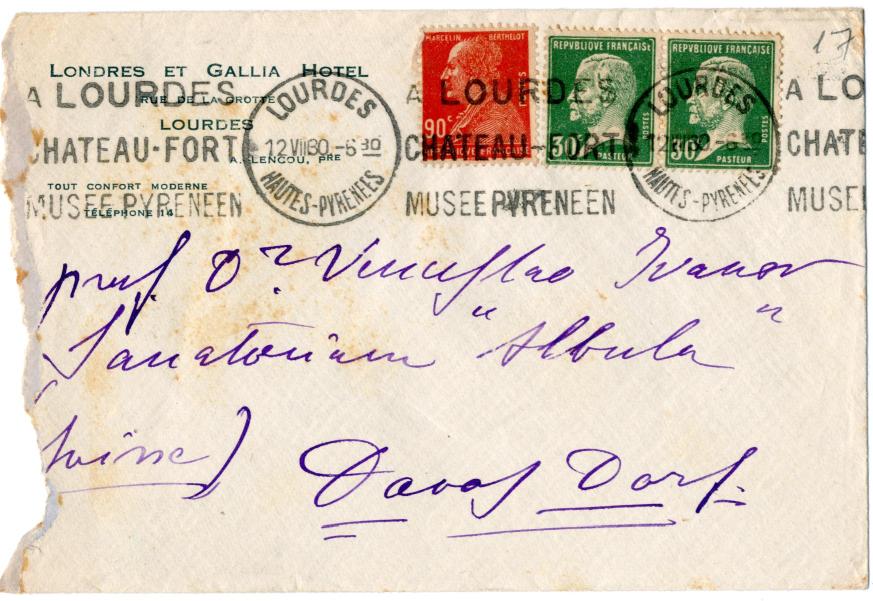 17
LONDRES ET GALLIA HOTEL
RUE DE LA GROTTE
LOURDES
A. LENCOU, PRE
TOUT CONFORT MODERNE
TÉLÉPHONE 14
A LOURDES
CHATEAU-FORT
MUSEE PYRENEEN
LOURDES
12 VII 30 - 6 30
HAUTES-PYRENEES
MARCELIN BERTHELOT
90c
POSTES
REPVBLIQUE FRANÇAISE
30c
POSTES
PASTEUR
REPVBLIQUE FRANÇAISE
30c
POSTES
PASTEUR
A LOURDES
CHATEAU-FORT
MUSEE PYRENEEN
LOURDES
HAUTES-PYRENEES
A LO
CHATE
MUSEE
prof. Dr Venceslao Ivanov
Sanatorium "Albula"
Suisse)
Davos Dorf